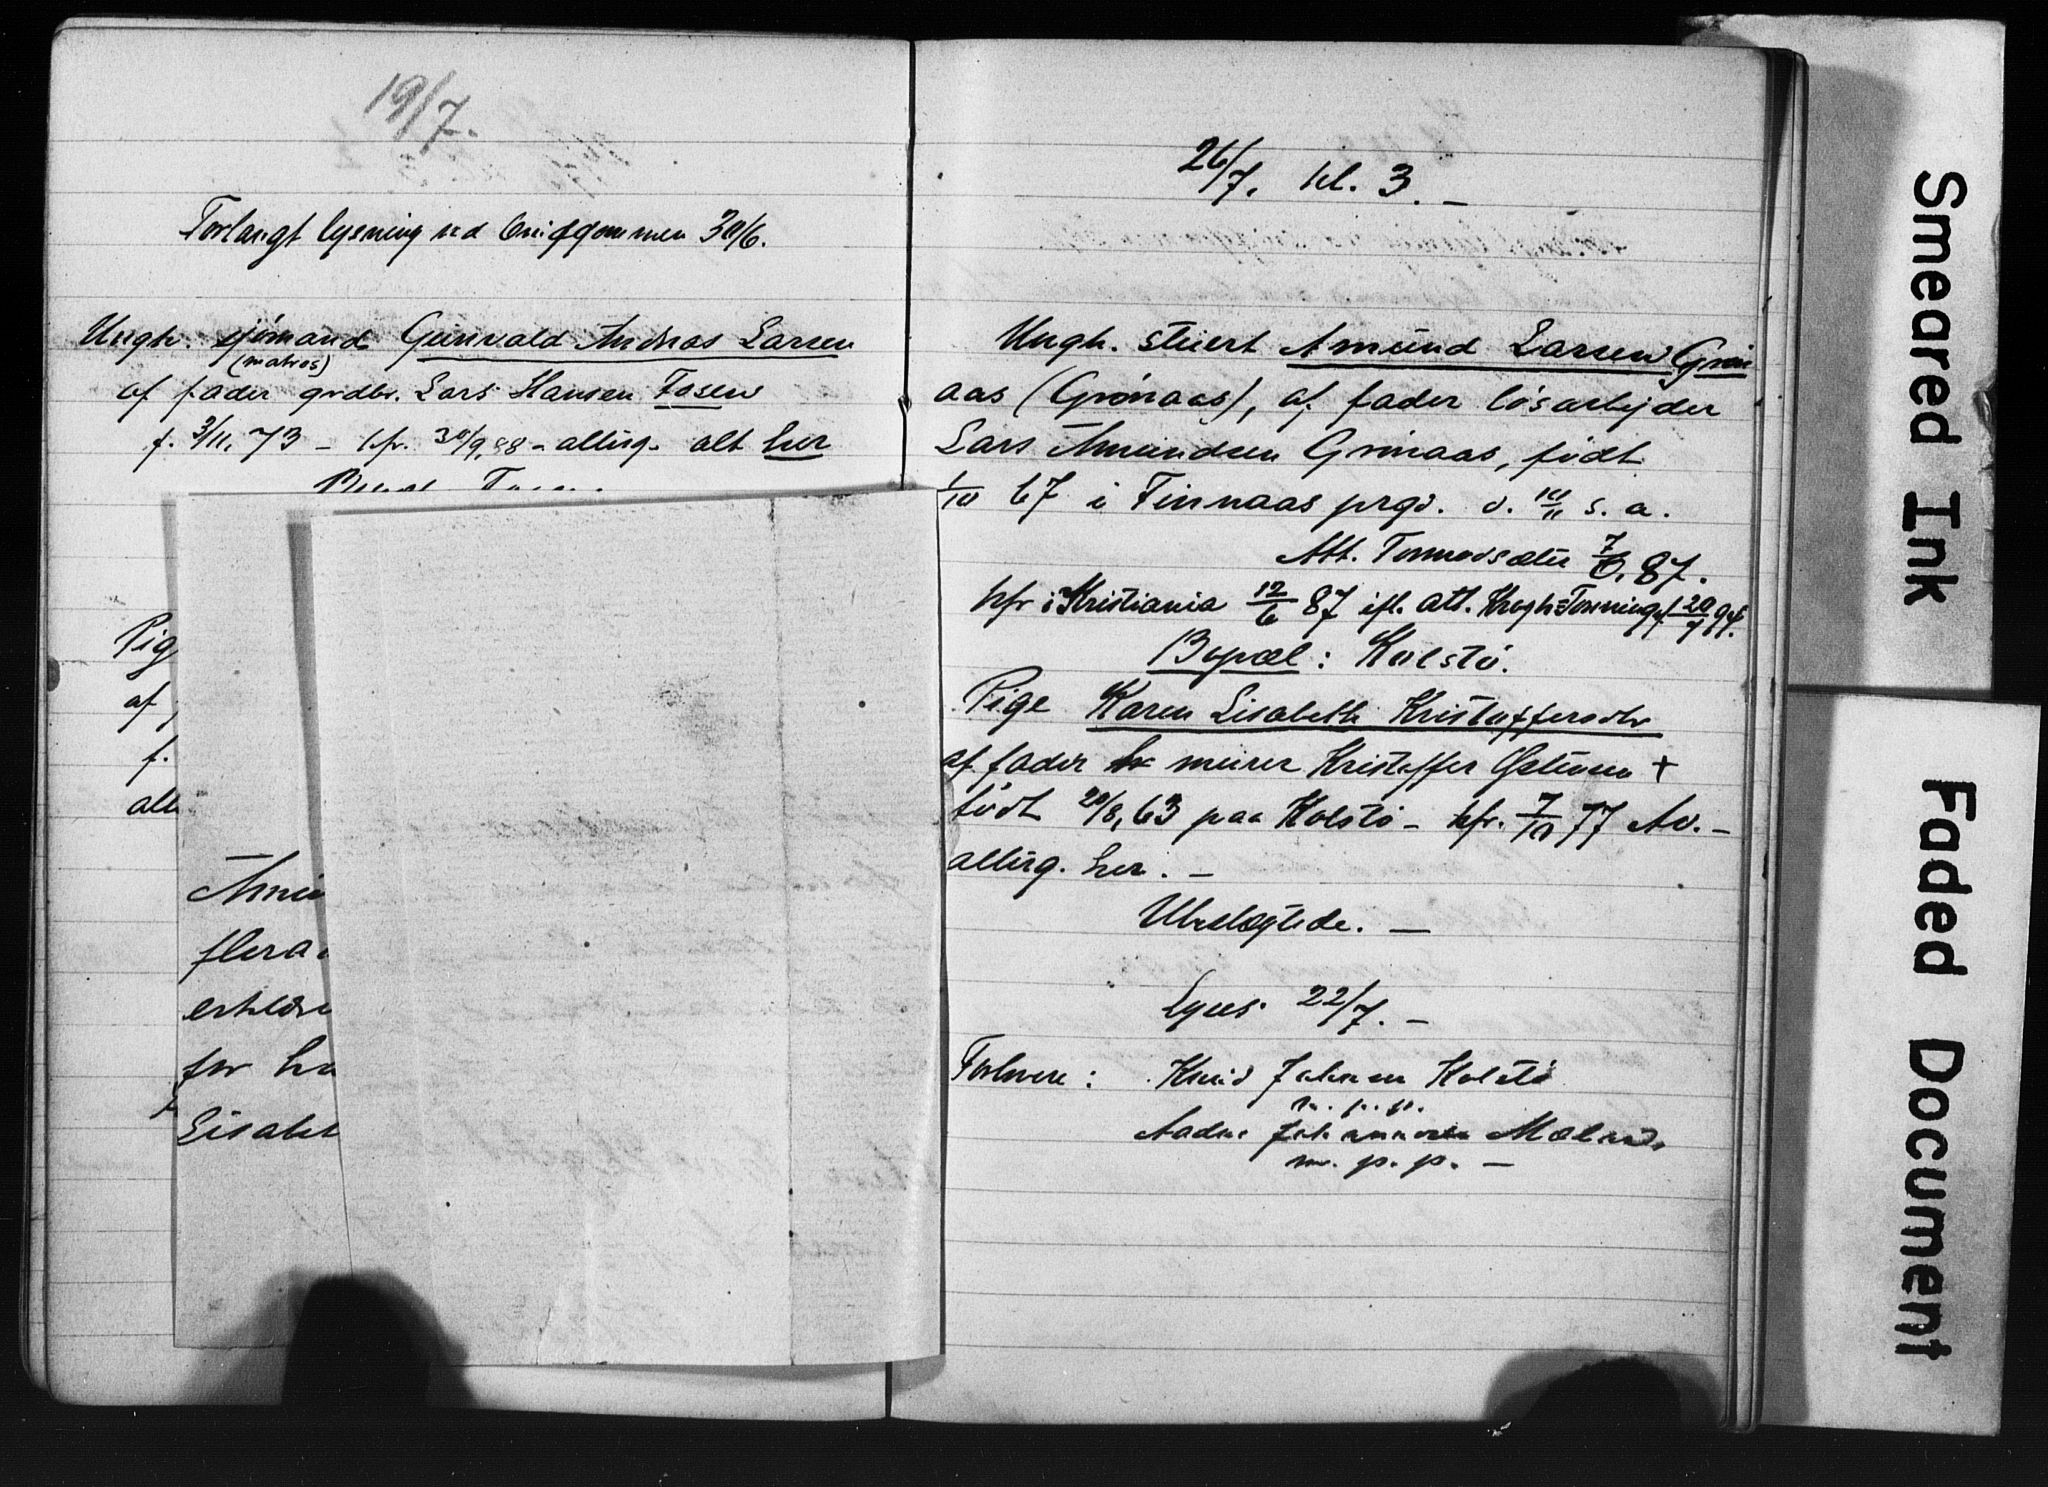 19/7.
Forlangt lysning ved brudgommen 30/6.
Ungk. sjømand Gunvald Andreas Larsen
(matros)
af fader grdbr. Lars Hansen Fosen
f. 3/11, 73 - kfr. 30/9, 88 - allürg. alt her
Pig
af
f.
all
flera
erklær
for ha
Lisabet
26/7. kl. 3. -
Ungk. stuert Amund Larsen Grøn
aas (Grønaas), af fader løsarbejder
Lars Amundsen Grønaas, født
1/10 67 i Finnaas prgd. d. 10/11 s. a.
Att. Tormodsæter 7/6, 87.
kfr i Kristiania 12/6 87 ifl. att. Krogh-Tonning af 20/7 94.
Bopæl: Kolstø.
Pige Karen Lisabeth Kristoffersdtr
af fader murer Kristoffer +
født 20/8, 63 paa Kolstø - kfr. 7/10 77 Av. -
allürg. her. -
Ubeslægtede. -
Lyses 22/7. -
Forlovere: Knud Johnsen Kolstø
m. p. p.
Aadne Johannesen Mæland
m. p. p. -
Smeared Ink
Faded Document